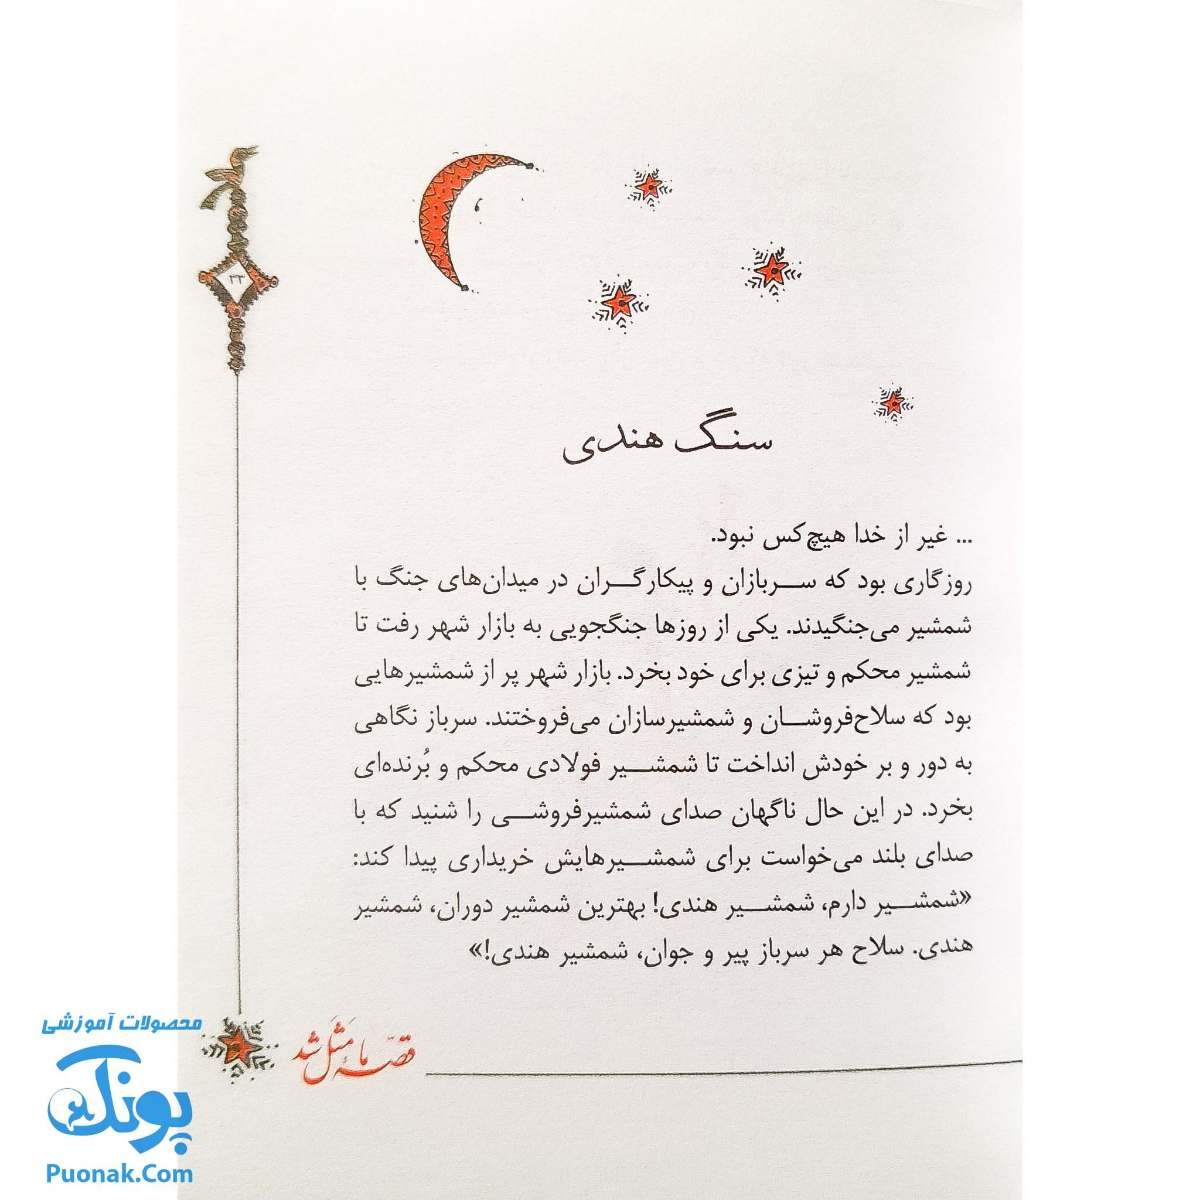 ۲۳
سنگ هندی
... غیر از خدا هیچ‌کس نبود.
روزگاری بود که سربازان و پیکارگران در میدان‌های جنگ با
شمشیر می‌جنگیدند. یکی از روزها جنگجویی به بازار شهر رفت تا
شمشیر محکم و تیزی برای خود بخرد. بازار شهر پر از شمشیرهایی
بود که سلاح‌فروشان و شمشیرسازان می‌فروختند. سرباز نگاهی
به دور و بر خودش انداخت تا شمشیر فولادی محکم و بُرنده‌ای
بخرد. در این حال ناگهان صدای شمشیرفروشی را شنید که با
صدای بلند می‌خواست برای شمشیرهایش خریداری پیدا کند:
«شمشیر دارم، شمشیر هندی! بهترین شمشیر دوران، شمشیر
هندی. سلاح هر سرباز پیر و جوان، شمشیر هندی!»
قصّه ما مَثَل شد
محصولات آموزشی
پونک
Puonak.Com